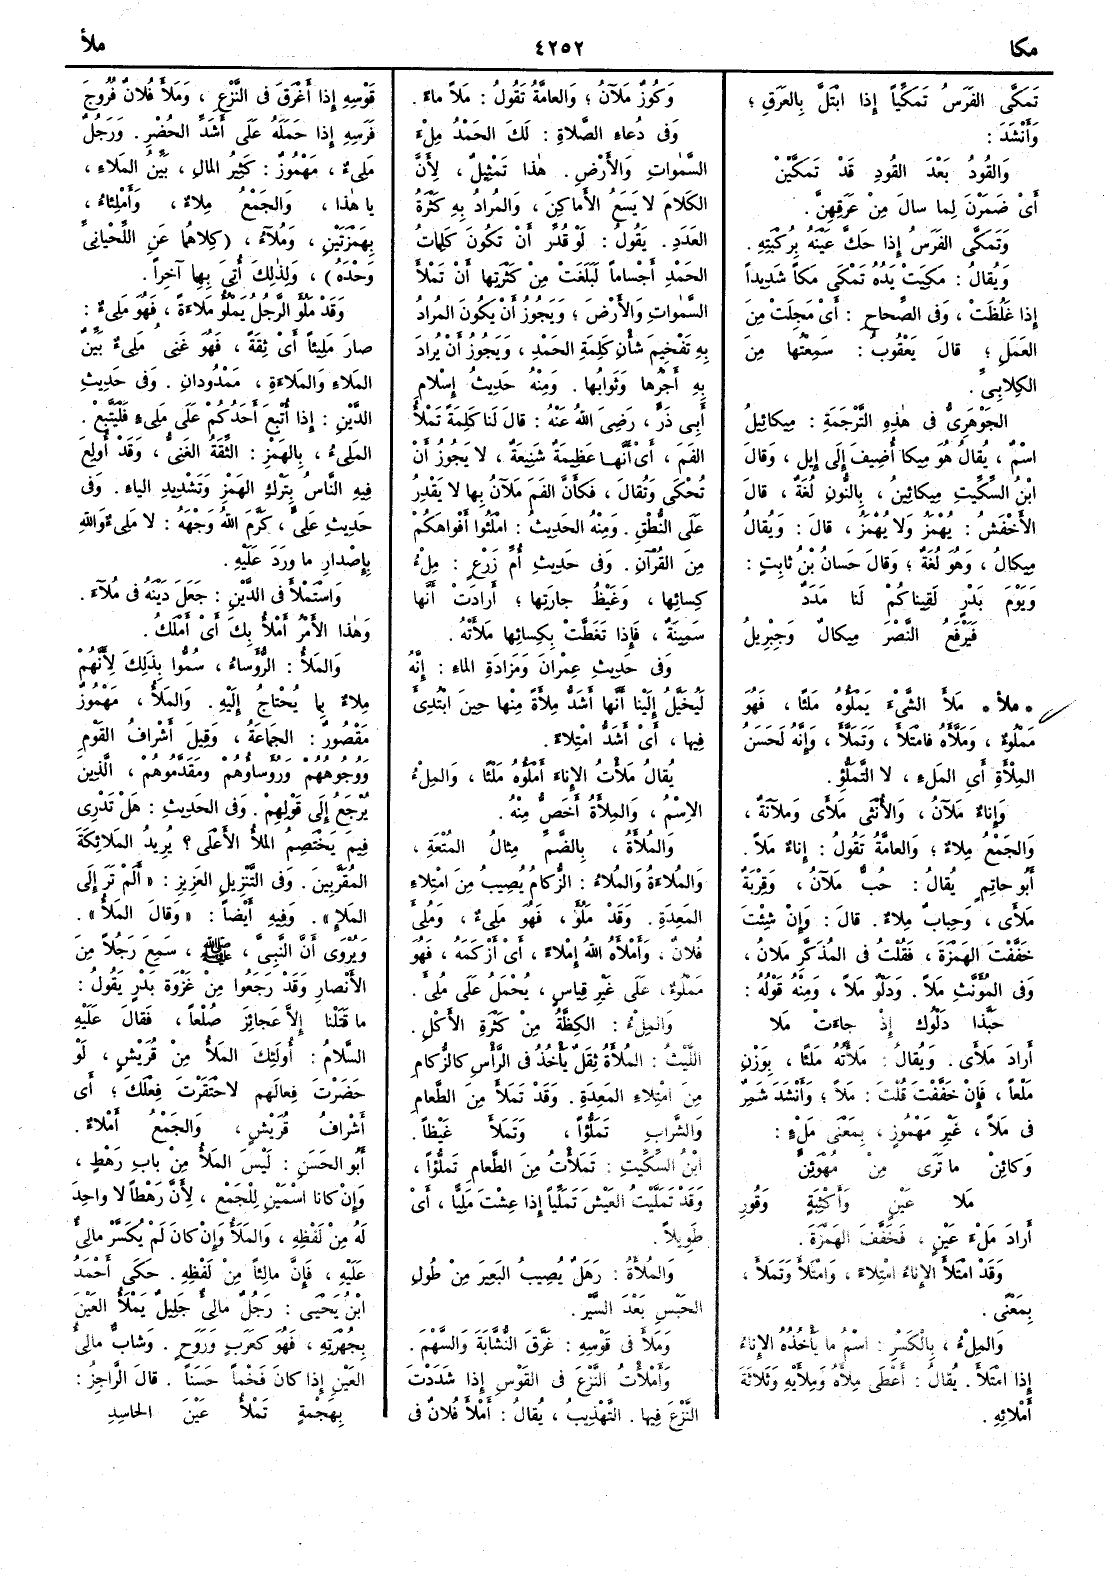 مكا
٤٢٥٢
ملأ
تَمَكَّى الفَرَسُ تَمَكِّياً إذا ابْتَلَّ بِالعَرَقِ ؛
وَأَنْشَدَ :
وَالقُودُ بَعْدَ القُودِ قَدْ تَمَكَّيْنْ
أَىْ ضَمَرْنَ لِما سالَ مِنْ عَرَقِهِنَّ .
وَتَمَكَّى الفَرَسُ إذا حَكَّ عَيْنَهُ بِرُكْبَتِهِ .
وَيُقالُ : مَكِيَتْ يَدُهُ تَمْكَى مَكاً شَدِيداً
إذا غَلُظَتْ ، وَفى الصِّحاحِ : أَىْ مَجِلَتْ مِنَ
العَمَلِ ؛ قالَ يَعْقُوبُ : سَمِعْتُها مِنَ
الكِلابِىِّ .
الجَوْهَرِىُّ فى هٰذِهِ التَّرْجَمَةِ : مِيكائِيلُ
اسْمٌ ، يُقالُ هُوَ مِيكا أُضِيفَ إلَى إيل ، وَقالَ
ابْنُ السِّكِّيتِ مِيكائِينُ ، بِالنُّونِ لُغَةٌ ، قالَ
الأَخْفَشُ : يُهْمَزُ وَلا يُهْمَزُ ، قالَ : وَيُقالُ
مِيكالُ ، وَهُوَ لُغَةٌ ؛ وَقالَ حَسانُ بْنُ ثابِتٍ :
وَيَوْمَ بَدْرٍ لَقِيناكُم لَنا مَدَدٌ
فَيَرْفَعُ النَّصْرَ مِيكالٌ وَجِبْرِيلُ
• ملأ • مَلأَ الشَّىْءَ يَمْلَؤُهُ مَلْئاً ، فَهُوَ
مَمْلُوءٌ ، وَمَلَّأَهُ فامْتَلأَ ، وَتَمَلَّأَ ، وَإِنَّهُ لَحَسَنُ
المِلْأَةِ أَىِ المَلْءِ ، لا التَّمَلُّؤِ .
وَإِناءٌ مَلآنُ ، وَالأُنْثَى مَلأَى وَمَلآنَةٌ ،
وَالجَمْعُ مِلاءٌ ؛ وَالعامَّةُ تَقُولُ : إِناءٌ مَلاً .
أَبُو حاتِمٍ يُقالُ : حُبٌّ مَلآنُ ، وَقِرْبَةٌ
مَلأَى ، وَحِبابٌ مِلاءٌ . قالَ : وَإِنْ شِئْتَ
خَفَّفْتَ الهَمْزَةَ ، فَقُلْتَ فى المُذَكَّرِ مَلانُ ،
وَفى المُؤَنَّثِ مَلاً . وَدَلْوٌ مَلاً ، وَمِنْهُ قَوْلُهُ :
حَبَّذا دَلْوُكِ إِذْ جاءَتْ مَلا
أَرادَ مَلأَى . وَيُقالُ : مَلأْتُهُ مَلْئاً ، بِوَزْنِ
مَلْعاً ، فَإِنْ خَفَّفْتَ قُلْتَ : مَلاً ؛ وَأَنْشَدَ شَمِرٌ
فى مَلاً ، غَيْرِ مَهْمُوزٍ ، بِمَعْنَى مَلْءٍ :
وَكائِنْ ما تَرَى مِنْ مُهْوَئِنٍّ
مَلا عَيْنٍ وَأَكْثِبَةٍ وَقُورِ
أَرادَ مَلْءَ عَيْنٍ ، فَخَفَّفَ الهَمْزَةَ .
وَقَدْ امْتَلأَ الإِناءُ امْتِلاءً ، وَامْتَلأَ وَتَمَلأَ ،
بِمَعْنًى .
وَالمِلْءُ ، بِالْكَسْرِ : اسْمُ ما يَأْخُذُهُ الإِناءُ
إِذا امْتَلأَ . يُقالُ : أَعْطَى مِلأَهُ وَمِلأَيْهِ وَثَلاثَةَ
أَمْلائِهِ .
وَكُوزٌ مَلآنُ ؛ وَالعامَّةُ تَقُولُ : مَلاً ماءً .
وَفى دُعاءِ الصَّلاةِ : لَكَ الحَمْدُ مِلْءَ
السَّمٰواتِ وَالأَرْضِ . هٰذا تَمْثِيلٌ ، لِأَنَّ
الكَلامَ لا يَسَعُ الأَماكِنَ ، وَالمُرادُ بِهِ كَثْرَةُ
العَدَدِ . يَقُولُ : لَوْ قُدِّرَ أَنْ تَكُونَ كَلِماتُ
الحَمْدِ أَجْساماً لَبَلَغَتْ مِنْ كَثْرَتِها أَنْ تَمْلأَ
السَّمٰواتِ وَالأَرْضَ ؛ وَيَجُوزُ أَنْ يَكُونَ المُرادُ
بِهِ تَفْخِيمَ شَأْنِ كَلِمَةِ الحَمْدِ ، وَيَجُوزُ أَنْ يُرادَ
بِهِ أَجْرُها وَثَوابُها . وَمِنْهُ حَدِيثُ إِسْلامِ
أَبِى ذَرٍّ ، رَضِىَ اللهُ عَنْهُ : قالَ لَنا كَلِمَةً تَمْلأُ
الفَمَ ، أَىْ أَنَّها عَظِيمَةٌ شَنِيعَةٌ ، لا يَجُوزُ أَنْ
تُحْكَى وَتُقالَ ، فَكَأَنَّ الفَمَ مَلآنُ بِها لا يَقْدِرُ
عَلَى النُّطْقِ . وَمِنْهُ الحَدِيثُ : امْلَئُوا أَفْواهَكُمْ
مِنَ القُرْآنِ . وَفى حَدِيثِ أُمِّ زَرْعٍ : مِلْءُ
كِسائِها ، وَغَيْظُ جارَتِها ؛ أَرادَتْ أَنَّها
سَمِينَةٌ ، فَإِذا تَغَطَّتْ بِكِسائِها مَلأَتْهُ .
وَفى حَدِيثِ عِمْرانَ وَمَزادَةِ الماءِ : إِنَّهُ
لَيُخَيَّلُ إِلَيْنا أَنَّها أَشَدُّ مِلأَةً مِنْها حِينَ ابْتُدِئَ
فِيها ، أَىْ أَشَدُّ امْتِلاءً .
يُقالُ مَلأْتُ الإِناءَ أَمْلَؤُهُ مَلْئاً ، وَالمِلْءُ
الاِسْمُ ، وَالمِلأَةُ أَخَصُّ مِنْهُ .
وَالمُلأَةُ ، بِالضَّمِّ مِثالُ المُتْعَةِ ،
وَالمُلاءَةُ وَالمُلاءُ : الزُّكامُ يُصِيبُ مِنَ امْتِلاءِ
المَعِدَةِ . وَقَدْ مَلُؤَ ، فَهُوَ مَلِىءٌ ، وَمُلِئَ
فُلانٌ ، وَأَمْلأَهُ اللهُ إِمْلاءً ، أَىْ أَزْكَمَهُ ، فَهُوَ
مَمْلُوءٌ ، عَلَى غَيْرِ قِياسٍ ، يُحْمَلُ عَلَى مُلِئَ .
وَالمِلْءُ : الكِظَّةُ مِنْ كَثْرَةِ الأَكْلِ .
اللَّيْثُ : المُلأَةُ ثِقَلٌ يَأْخُذُ فى الرَّأْسِ كالزُّكامِ
مِنِ امْتِلاءِ المَعِدَةِ . وَقَدْ تَمَلأَ مِنَ الطَّعامِ
وَالشَّرابِ تَمَلُّؤاً ، وَتَمَلأَ غَيْظاً .
ابْنُ السِّكِّيتِ : تَمَلأْتُ مِنَ الطَّعامِ تَمَلُّؤاً ،
وَقَدْ تَمَلَّيْتُ العَيْشَ تَمَلِّياً إِذا عِشْتَ مَلِيًّا ، أَىْ
طَوِيلاً .
وَالمُلأَةُ : رَهَلٌ يُصِيبُ البَعِيرَ مِنْ طُولِ
الحَبْسِ بَعْدَ السَّيْرِ .
وَمَلأَ فى قَوْسِهِ : غَرَّقَ النُّشَّابَةَ وَالسَّهْمَ .
وَأَمْلأْتُ النَّزْعَ فى القَوْسِ إِذا شَدَدْتَ
النَّزْعَ فِيها . التَّهْذِيبُ ، يُقالُ : أَمْلأَ فُلانٌ فى
قَوْسِهِ إِذا أَغْرَقَ فى النَّزْعِ ، وَمَلأَ فُلانٌ فُرُوجَ
فَرَسِهِ إِذا حَمَلَهُ عَلَى أَشَدِّ الحُضْرِ . وَرَجُلٌ
مَلِىءٌ ، مَهْمُوزٌ : كَثِيرُ المالِ ، بَيِّنُ المَلاءِ ،
يا هٰذا ، وَالجَمْعُ مِلاءٌ ، وَأَمْلِئاءُ ،
بِهَمْزَتَيْنِ ، وَمُلَآءُ ، (كِلاهُما عَنِ اللِّحْيانِىِّ
وَحْدَهُ) ، وَلِذٰلِكَ أُتِىَ بِها آخِراً .
وَقَدْ مَلُؤَ الرَّجُلُ يَمْلُؤُ مَلاءَةً ، فَهُوَ مَلِىءٌ :
صارَ مَلِيئاً أَىْ ثِقَةً ، فَهُوَ غَنِىٌّ مَلِىءٌ بَيِّنُ
المَلاءِ وَالمَلاءَةِ ، مَمْدُودانِ . وَفى حَدِيثِ
الدَّيْنِ : إِذا أُتْبِعَ أَحَدُكُمْ عَلَى مَلِىءٍ فَلْيَتَّبِعْ .
المَلِىءُ ، بِالهَمْزِ : الثِّقَةُ الغَنِىُّ ، وَقَدْ أُولِعَ
فِيهِ النَّاسُ بِتَرْكِ الهَمْزِ وَتَشْدِيدِ الياءِ . وَفى
حَدِيثِ عَلِىٍّ ، كَرَّمَ اللهُ وَجْهَهُ : لا مَلِىءٌ وَاللهِ
بِإِصْدارِ ما وَرَدَ عَلَيْهِ .
وَاسْتَمْلأَ فى الدَّيْنِ : جَعَلَ دَيْنَهُ فى مُلَآءَ .
وَهٰذا الأَمْرُ أَمْلأُ بِكَ أَىْ أَمْلَكُ .
وَالمَلأُ : الرُّؤَساءُ ، سُمُّوا بِذٰلِكَ لِأَنَّهُمْ
مِلاءٌ بِما يُحْتاجُ إِلَيْهِ . وَالمَلأُ ، مَهْمُوزٌ
مَقْصُورٌ : الجَماعَةُ ، وَقِيلَ أَشْرافُ القَوْمِ
وَوُجُوهُهُمْ وَرُؤَساؤُهُمْ وَمُقَدَّمُوهُمْ ، الَّذِينَ
يُرْجَعُ إِلَى قَوْلِهِمْ . وَفى الحَدِيثِ : هَلْ تَدْرِى
فِيمَ يَخْتَصِمُ المَلأُ الأَعْلَى ؟ يُرِيدُ المَلائِكَةَ
المُقَرَّبِينَ . وَفى التَّنْزِيلِ العَزِيزِ : « أَلَمْ تَرَ إِلَى
المَلإِ » . وَفِيهِ أَيْضاً : « وَقالَ المَلأُ » .
وَيُرْوَى أَنَّ النَّبِىَّ ، ﷺ ، سَمِعَ رَجُلاً مِنَ
الأَنْصارِ وَقَدْ رَجَعُوا مِنْ غَزْوَةِ بَدْرٍ يَقُولُ :
ما قَتَلْنا إِلاَّ عَجائِزَ صُلْعاً ، فَقالَ عَلَيْهِ
السَّلامُ : أُولَئِكَ المَلأُ مِنْ قُرَيْشٍ ، لَوْ
حَضَرْتَ فِعالَهُم لاحْتَقَرْتَ فِعْلَكَ ؛ أَىْ
أَشْرافُ قُرَيْشٍ ، وَالجَمْعُ أَمْلاءٌ .
أَبُو الحَسَنِ : لَيْسَ المَلأُ مِنْ بابِ رَهْطٍ ،
وَإِنْ كانا اسْمَيْنِ لِلْجَمْعِ ، لِأَنَّ رَهْطاً لا واحِدَ
لَهُ مِنْ لَفْظِهِ ، وَالمَلأُ وَإِنْ كانَ لَمْ يُكَسَّرْ مالِئٌ
عَلَيْهِ ، فَإِنَّ مالِئاً مِنْ لَفْظِهِ . حَكَى أَحْمَدُ
ابْنُ يَحْيَى : رَجُلٌ مالِئٌ جَلِيلٌ يَمْلأُ العَيْنَ
بِجُهْرَتِهِ ، فَهُوَ كَعَرَبٍ وَرَوَحٍ . وَشابٌّ مالِئُ
العَيْنِ إِذا كانَ فَخْماً حَسَناً . قالَ الرَّاجِزُ :
بِهَجْمَةٍ تَمْلأُ عَيْنَ الحاسِدِ